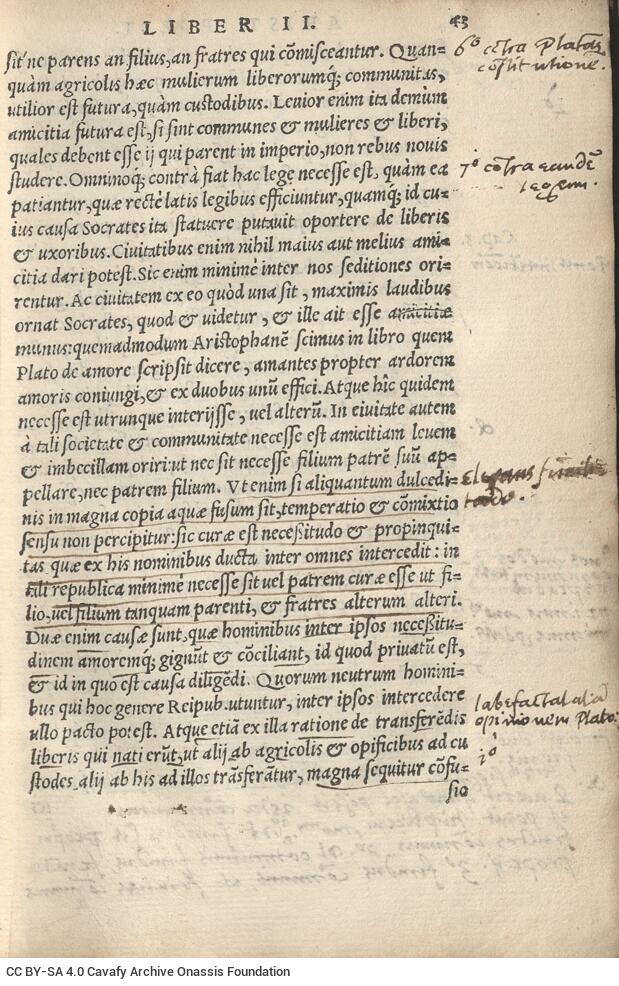 LIBER II.
43
sit'ne parens an filius, an fratres qui cōmisceantur. Quan=
quàm agricolis hæc mulierum liberorumq; communitas,
utilior est futura, quàm custodibus. Leuior enim ita demùm
amicitia futura est, si sint communes & mulieres & liberi,
quales debent esse ij qui parent in imperio, non rebus nouis
studere. Omninoq; contrà fiat hac lege necesse est, quàm ea
patiantur, quæ rectè latis legibus efficiuntur, quamq; id cu=
ius causa Socrates ita statuere putauit oportere de liberis
& uxoribus. Ciuitatibus enim nihil maius aut melius ami=
citia dari potest. Sic enim minimè inter nos seditiones ori=
rentur. Ac ciuitatem ex eo quòd una sit, maximis laudibus
ornat Socrates, quod & uidetur, & ille ait esse amicitiæ
munus: quemadmodum Aristophanē scimus in libro quem
Plato de amore scripsit dicere, amantes propter ardorem
amoris coniungi, & ex duobus unū effici. Atque hîc quidem
necesse est utrunque interijsse, uel alterū. In eiuitate autem
à tali societate & communitate necesse est amicitiam leuem
& imbecillam oriri: ut nec sit necesse filium patrē suū ap=
pellare, nec patrem filium. Vt enim si aliquantum dulcedi=
nis in magna copia aquæ fusum sit, temperatio & cōmixtio
sensu non percipitur: sic curæ est necessitudo & propinqui=
tas quæ ex his nominibus ducta inter omnes intercedit: in
tali republica minimè necesse sit uel patrem curæ esse ut fi=
lio, uel filium tanquam parenti, & fratres alterum alteri.
Duæ enim causæ sunt, quæ hominibus inter ipsos necessitu=
dinem amoremq; gignūt & cōciliant, id quod priuatū est,
& id in quo est causa diligēdi. Quorum neutrum homini=
bus qui hoc genere Reipub. utuntur, inter ipsos intercedere
ullo pacto potest. Atque etiā ex illa ratione de transferēdis
liberis qui nati erūt, ut alij ab agricolis & opificibus ad cu
stodes, alij ab his ad illos trāsferātur, magna sequitur cōfu=
sio
6º cōtra Platonis
cōstitutione.
7º cōtra eandē
legem.
Elegans simili
tudo.
labefactat aliā
opinionem Plato:
CC BY-SA 4.0 Cavafy Archive Onassis Foundation